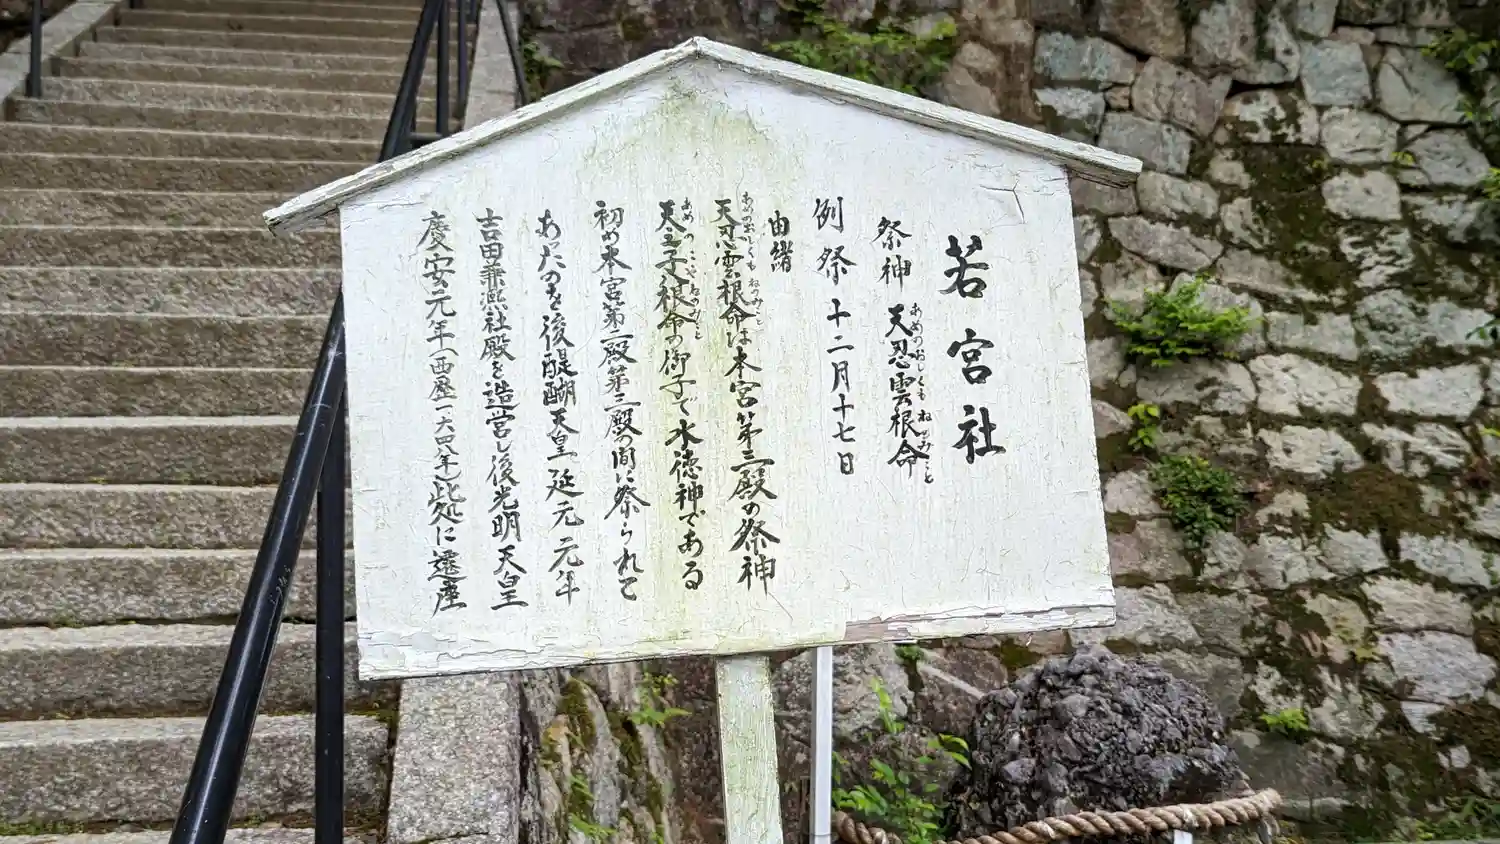 若宮社
祭神 天忍雲根命
あめのおしくもねのみこと
例祭 十二月十七日
由緒
天忍雲根命は本宮第三殿の祭神
あめのおしくもねのみこと
天之子根命の御子で水徳神である
初め本宮第二殿第三殿の間に祭られて
あったのを後醍醐天皇延元元年
吉田兼熙社殿を造営し後光明天皇
慶安元年(西歴一六四八年)此処に遷座